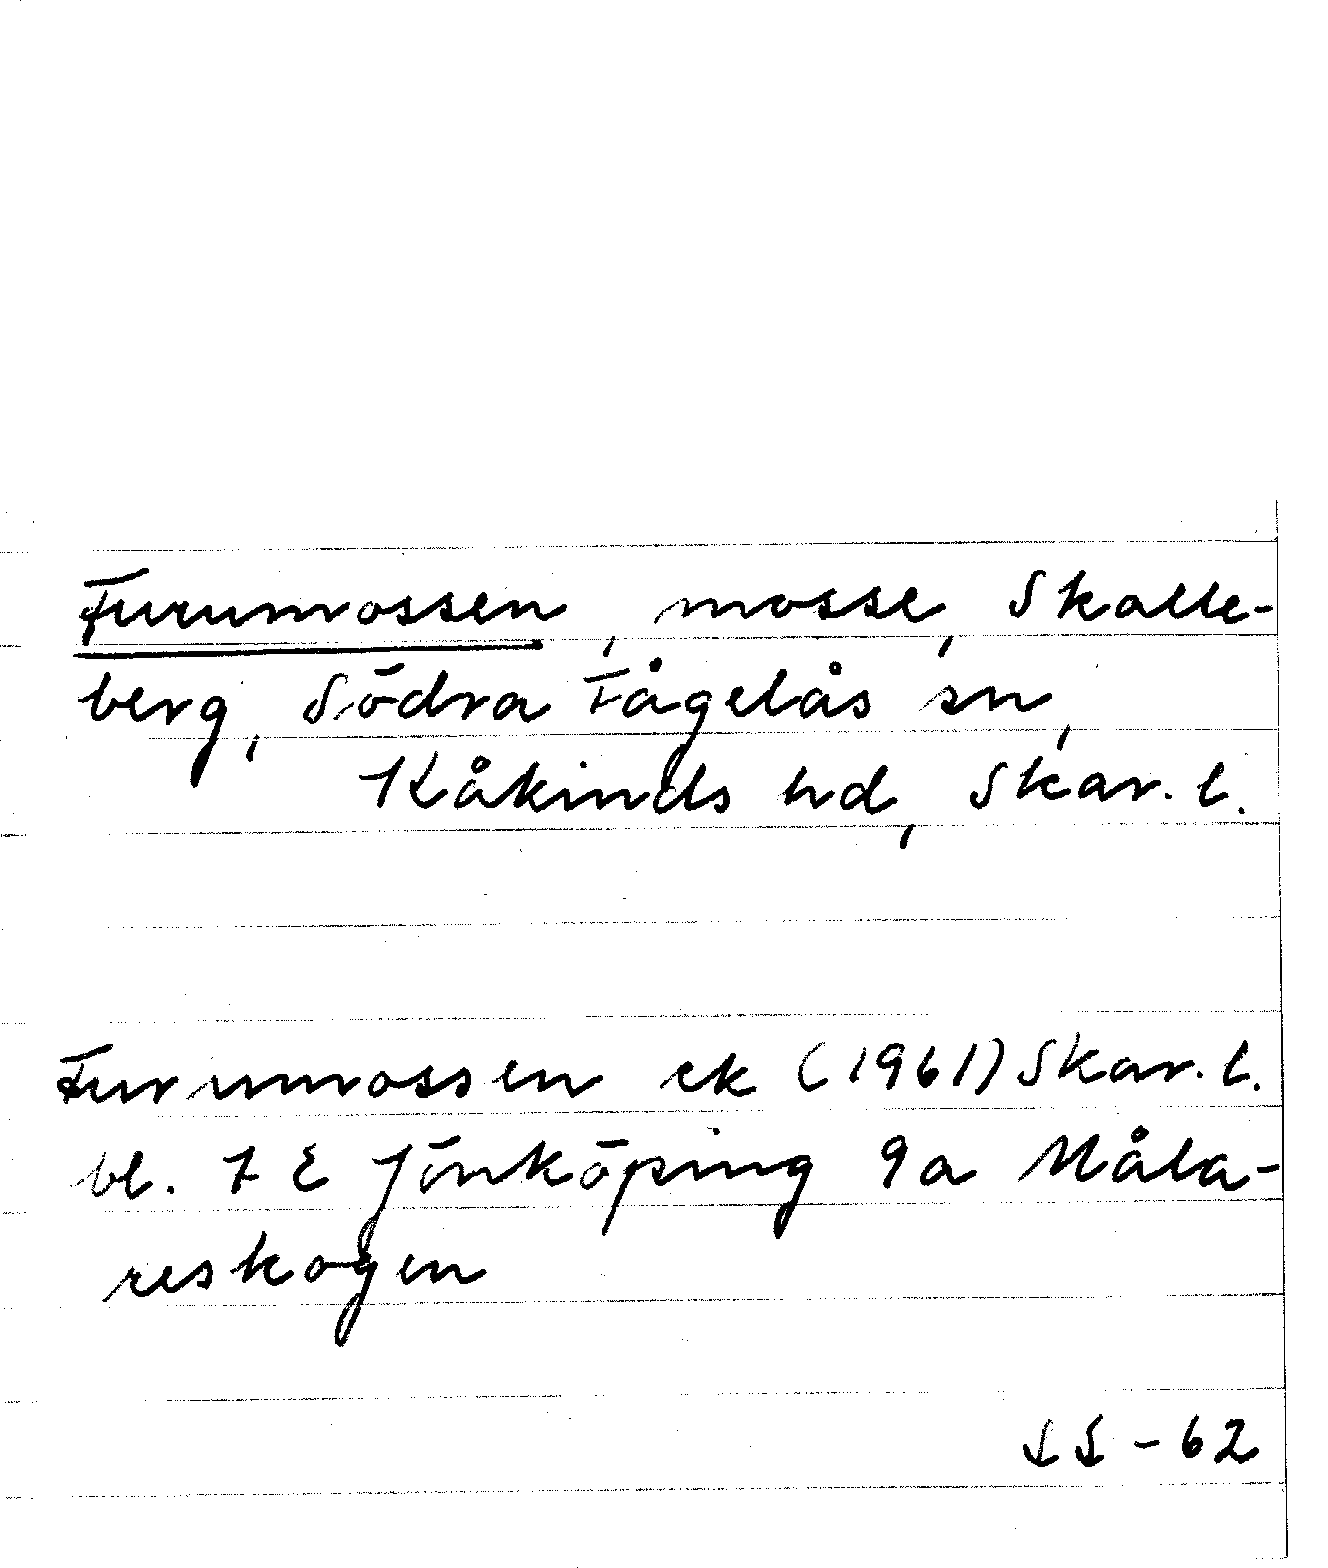 Furumossen, mosse, Skalle-
berg, Södra Fågelås sn,
Kåkinds hd, Skar. l.
Furumossen ek (1961) Skar. l.
bl. 7 E Jönköping 9a Måla-
reskogen
SS - 62